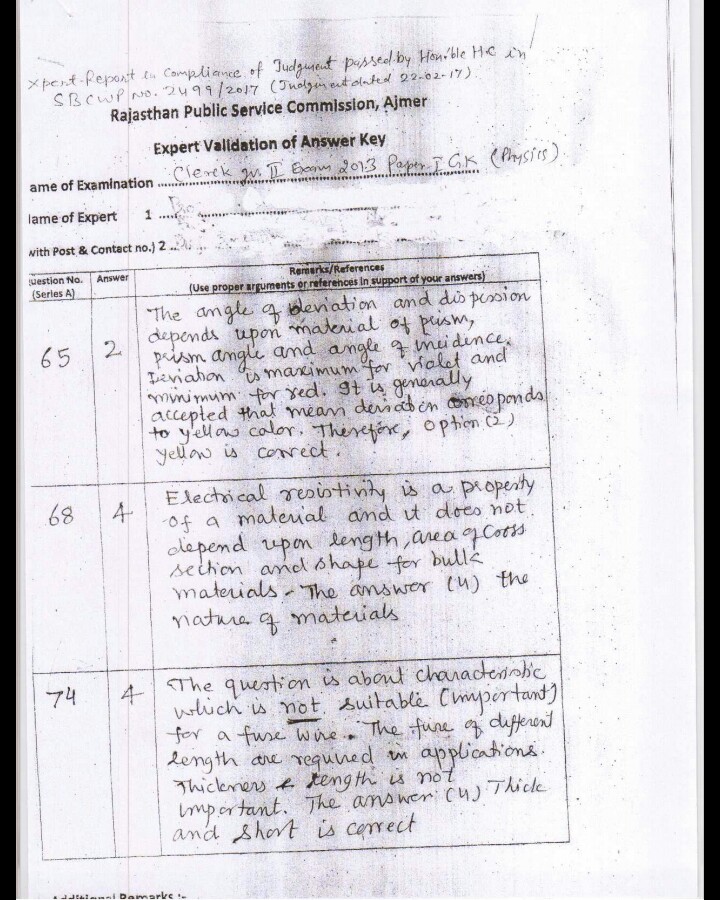 xpert-Report in Compliance of Judgment passed by Hon'ble H.C in
SBCWP No. 2499/2017 (Judgment dated 22-02-17).
Rajasthan Public Service Commission, Ajmer
Expert Validation of Answer Key
ame of Examination Clerck gr. II Exam 2013 Paper-I G.K (Physics)
lame of Expert 1
with Post & Contact no.) 2
uestion No. (Series A) Answer Remarks/References
(Use proper arguments or references in support of your answers)
65 2 The angle of deviation and dispession
depends upon material of prism,
prism angle and angle of incidence.
Deviation is maximum for violet and
minimum for red. It is generally
accepted that mean deviation corresponds
to yellow color. Therefore, option (2)
yellow is correct.
68 4 Electrical resistivity is a property
of a material and it does not
depend upon length, area of cross
section and shape for bulk
materials - The answer (4) the
nature of materials
74 4 The question is about characteristic
which is not suitable (important)
for a fuse wire. The fuse of different
length are required in applications.
Thickness & length is not
important. The answer (4) Thick
and short is correct
Additional Remarks :-